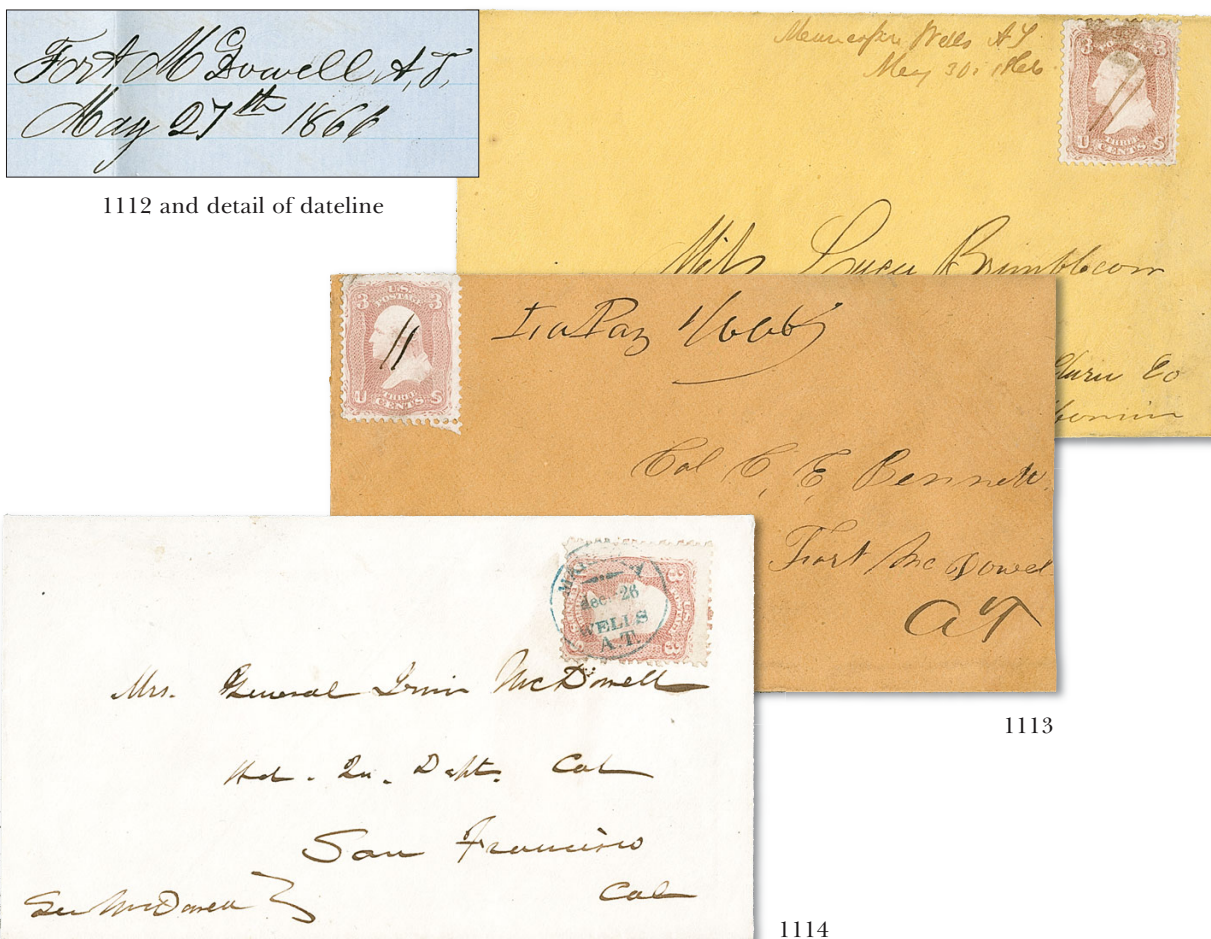 Fort McDowell, A,T,
May 27th 1866
1112 and detail of dateline
Wells A T
May 30. 1866
3 3
POSTAGE
U S
THREE
CENTS
Miss Lucy Brimblecom
Co
U.S.
3 POSTAGE 3
U S
THREE
CENTS
La Paz 1/66
Col C, E, Bennett
Fort McDowell
AT
1113
dec-26
WELLS
A.T.
3
Mrs. General Irwin McDowell
Hd. Qu. Dept. Cal
San Francisco
Cal
Gen McDowell
1114